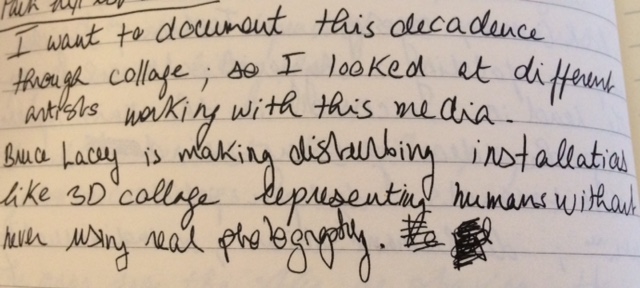 I want to document this decadence
through collage ; so I looked at different
artists working with this media.
Bruce Lacey is making disturbing installations
like 3D collage representing humans without
never using real photography.